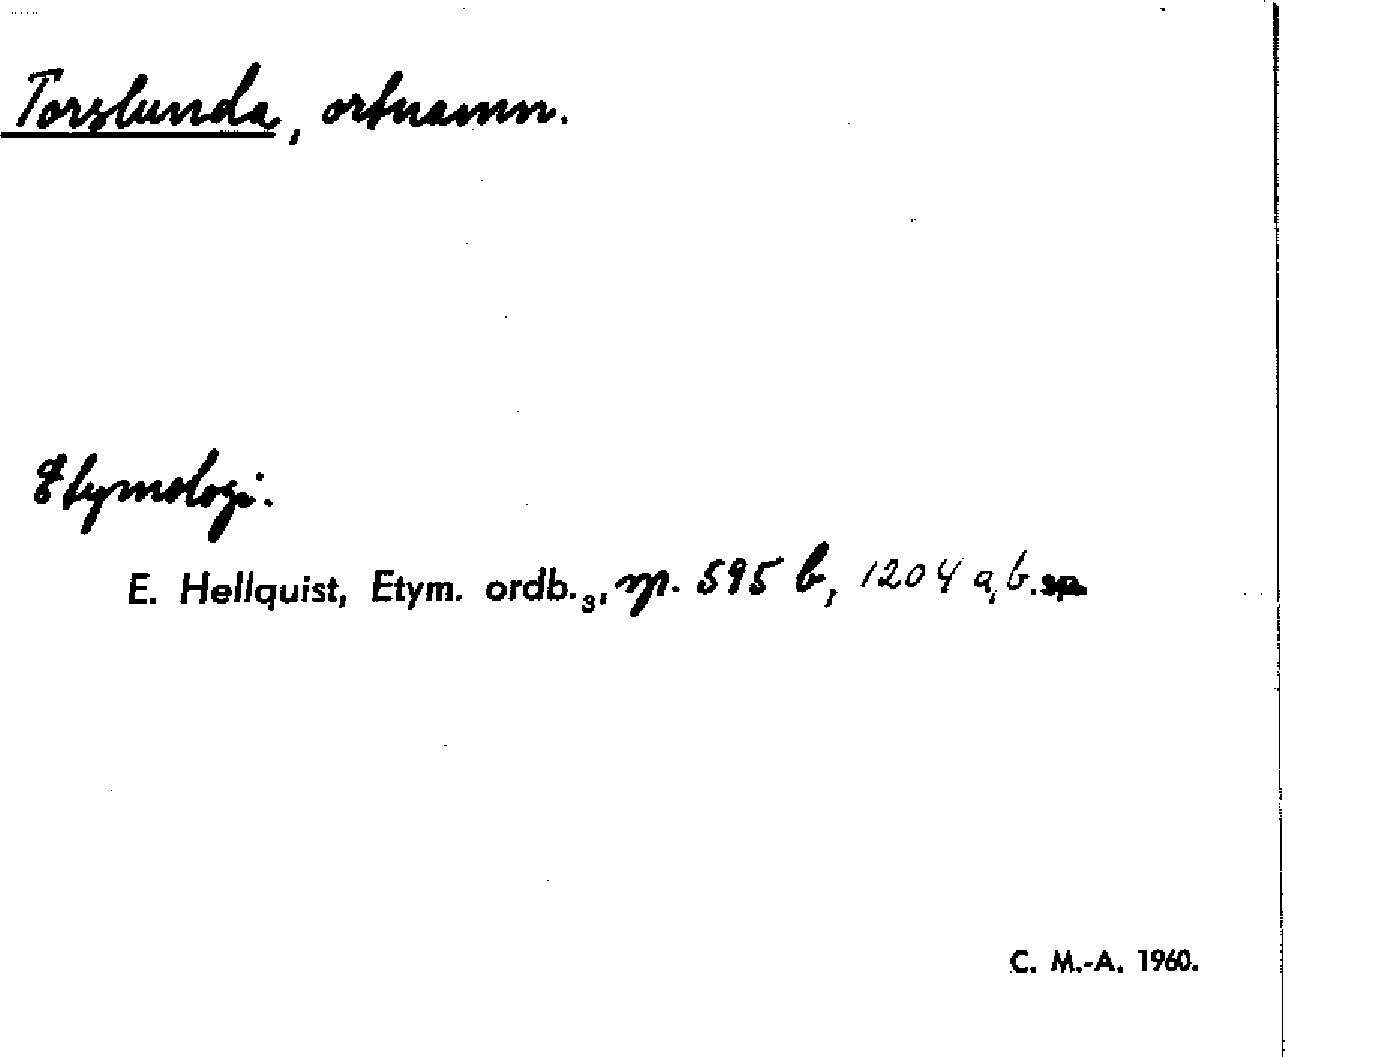 Torslunda, ortnamn.
Etymologi.
E. Hellquist, Etym. ordb.₃, sp. 595 b, 1204 a, b.
C. M.-A. 1960.